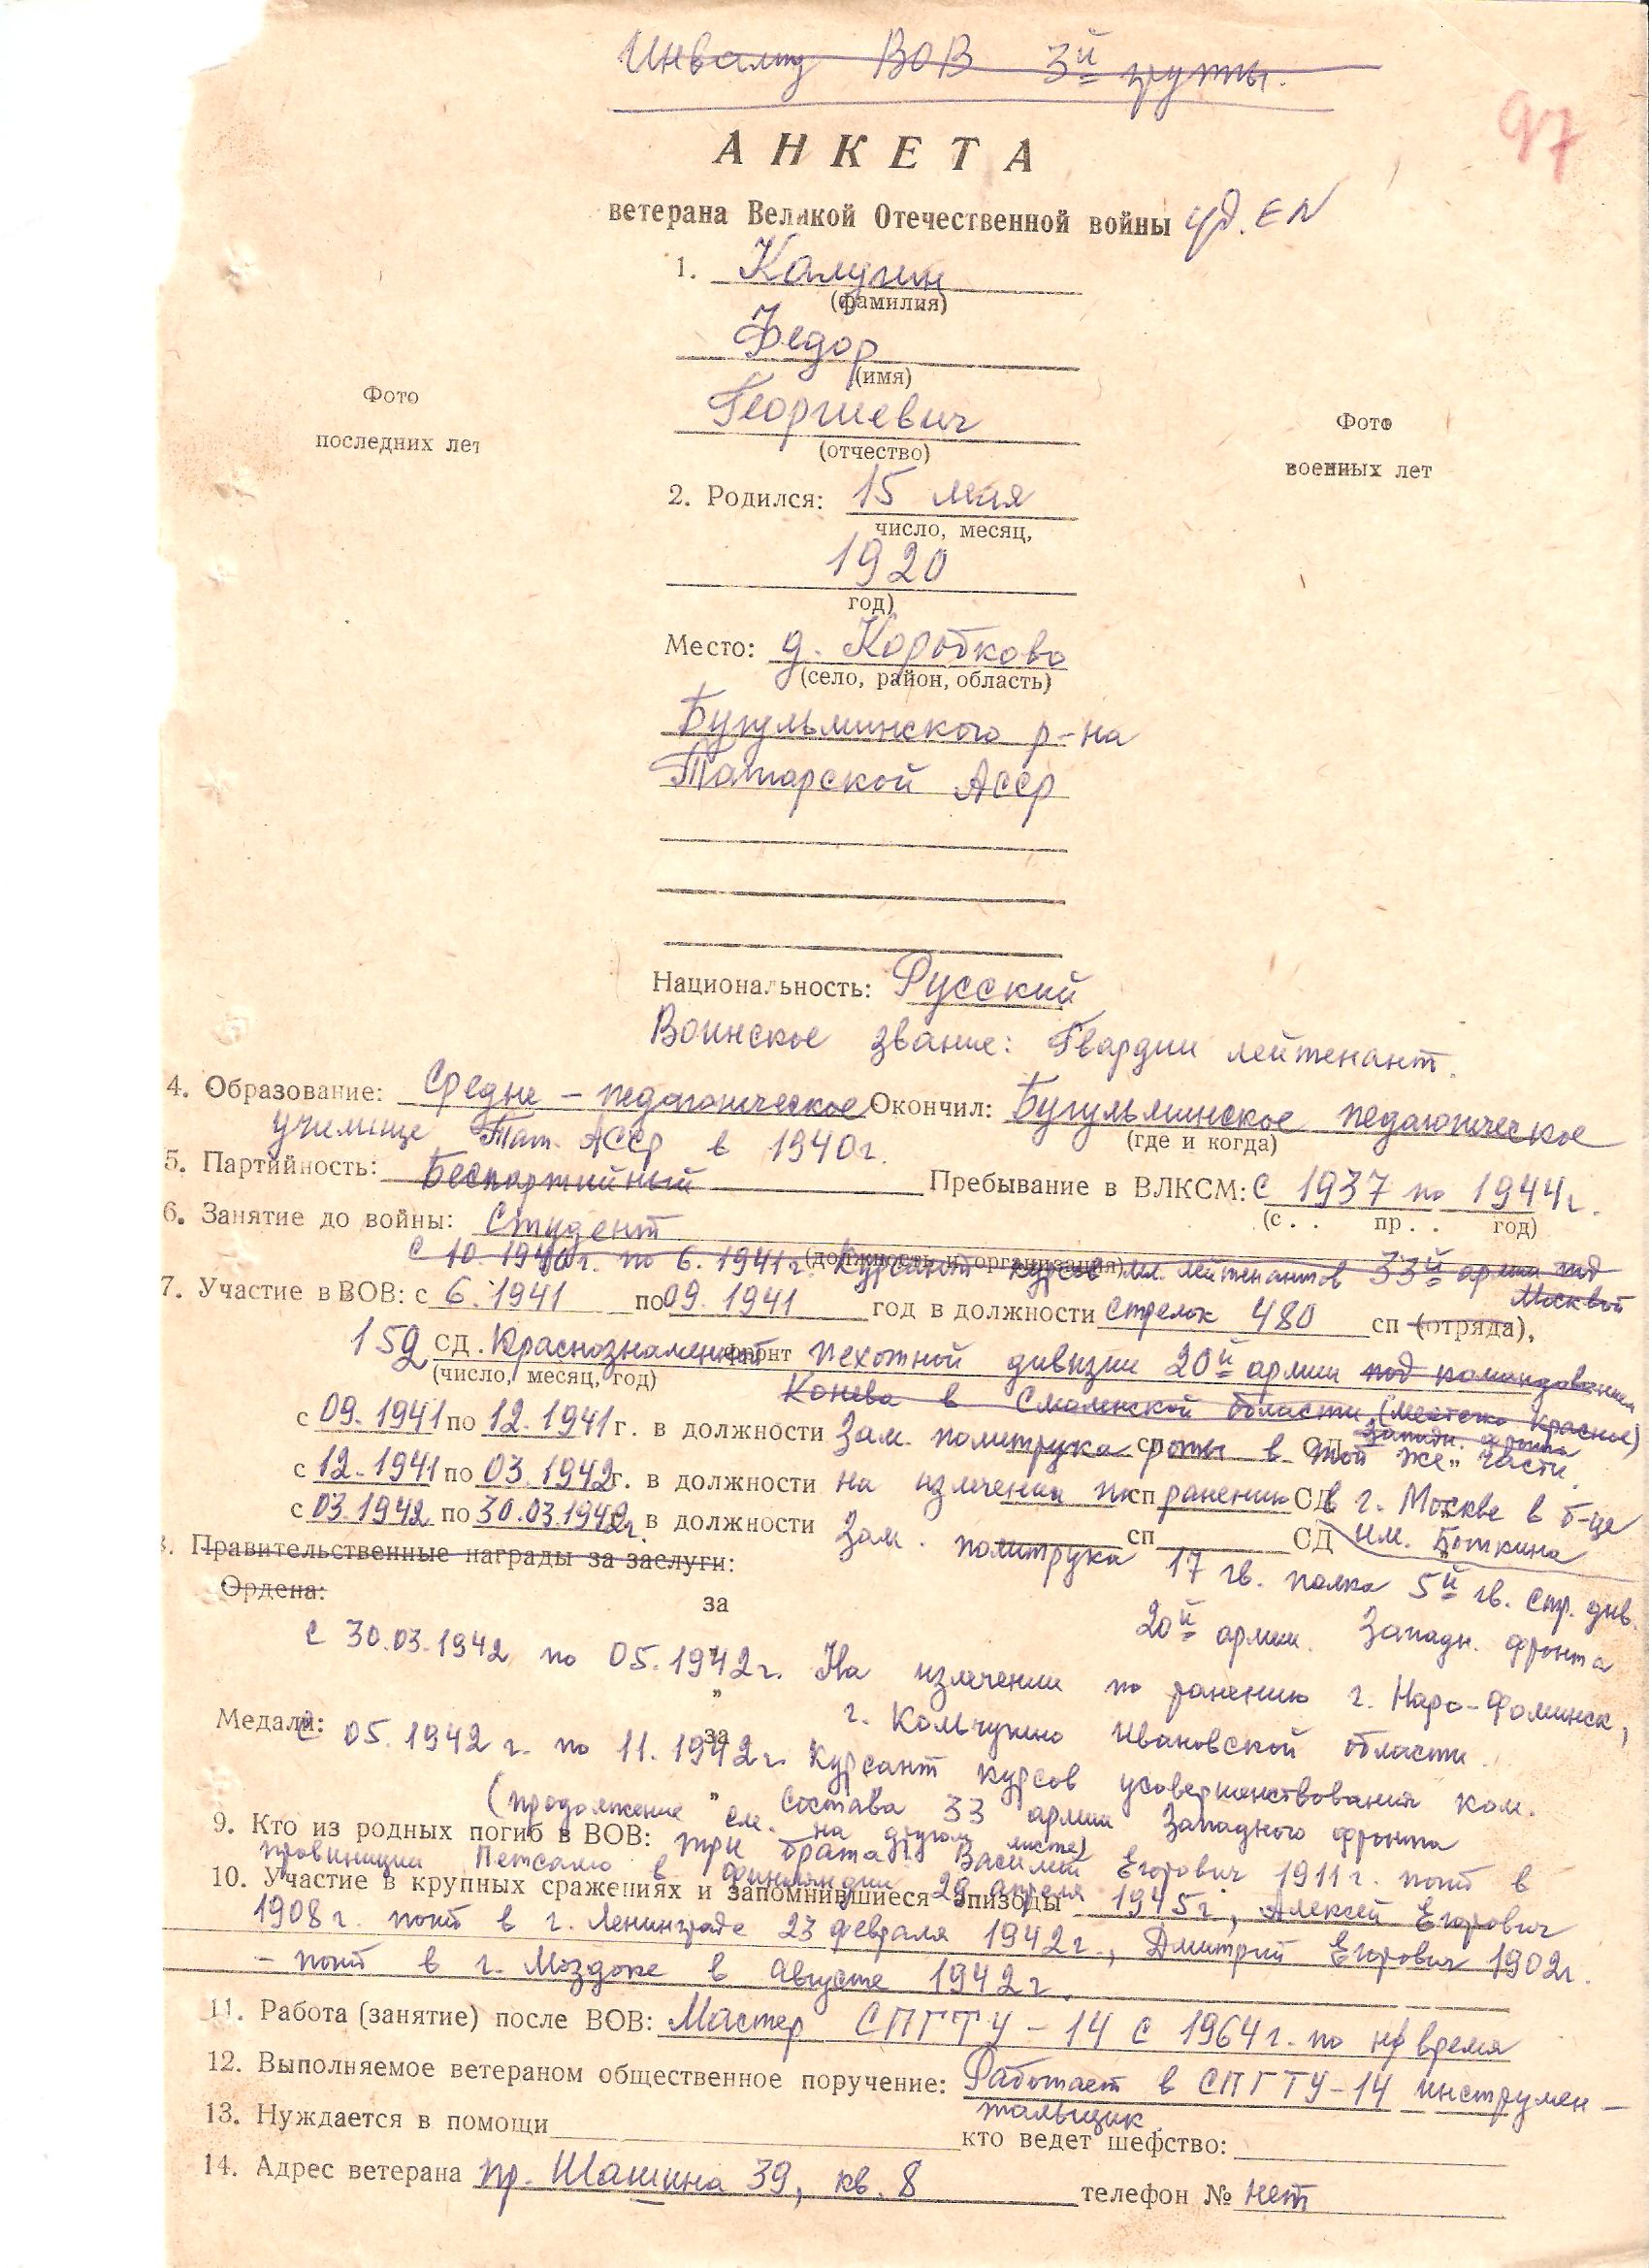 Инвалид ВОВ 3й группы.
97
АНКЕТА
ветерана Великой Отечественной войны уд.
1. Калугин
(фамилия)
Федор
(имя)
Фото
последних лет
Георгиевич
(отчество)
Фото
военных лет
2. Родился: 15 мая
число, месяц,
1920
год)
Место: д. Коробково
(село, район, область)
Бугульминского р-на
Татарской АССР
Национальность: Русский
Воинское звание: Гвардии лейтенант.
4. Образование: Средне - педагогическое Окончил: Бугульминское педагогическое
(где и когда)
училище Тат. АССР в 1940г.
5. Партийность: Беспартийный Пребывание в ВЛКСМ: с 1937 по 1944г.
(с . . пр . . год)
6. Занятие до войны: Студент
(должность и организация)
с 10. 1940г. по 6. 1941г. Курсант курсов мл. лейтенантов 33й армии под
Москвой
7. Участие в ВОВ: с 6. 1941 по 09. 1941 год в должности стрелок 480 сп (отряда),
159 СД. Краснознаменный фронт пехотной дивизии 20й армии под командованием
(число, месяц, год)
Конева в Смоленской области (местечко Красное)
Западн. фронта
с 09. 1941 по 12. 1941 г. в должности Зам. политрука сп роты в СД той же части.
с 12. 1941 по 03. 1942 г. в должности на излечении по сп ранению СД в г. Москве в б-це
им. Боткина
с 03. 1942 по 30.03.1942 г. в должности Зам. политрука сп СД 17 гв. полка 5й гв. стр. див.
20й армии. Западн. фронта
8. Правительственные награды за заслуги:
Ордена: за
с 30.03.1942 по 05. 1942г. На излечении по ранению г. Наро-Фоминск,
г. Кольчугино Ивановской области.
Медали: за
с 05. 1942 г. по 11. 1942г. Курсант курсов усовершенствования ком.
состава 33 армии Западного фронта
(продолжение см. на другом листе)
9. Кто из родных погиб в ВОВ: три брата: Василий Егорович 1911г. погиб в
провинции Петсамо в Финляндии 29 апреля 1945г, Алексей Егорович
10. Участие в крупных сражениях и запомнившиеся эпизоды
1908г. погиб в г. Ленинграде 23 февраля 1942г., Дмитрий Егорович 1902г.
- погиб в г. Моздоке в августе 1942г.
11. Работа (занятие) после ВОВ: Мастер СПГТУ - 14 с 1964г. по н/время
12. Выполняемое ветераном общественное поручение: Работает в СПГТУ-14 инструмен-
тальщик.
13. Нуждается в помощи кто ведет шефство:
14. Адрес ветерана пр. Шашина 39, кв. 8 телефон № нет